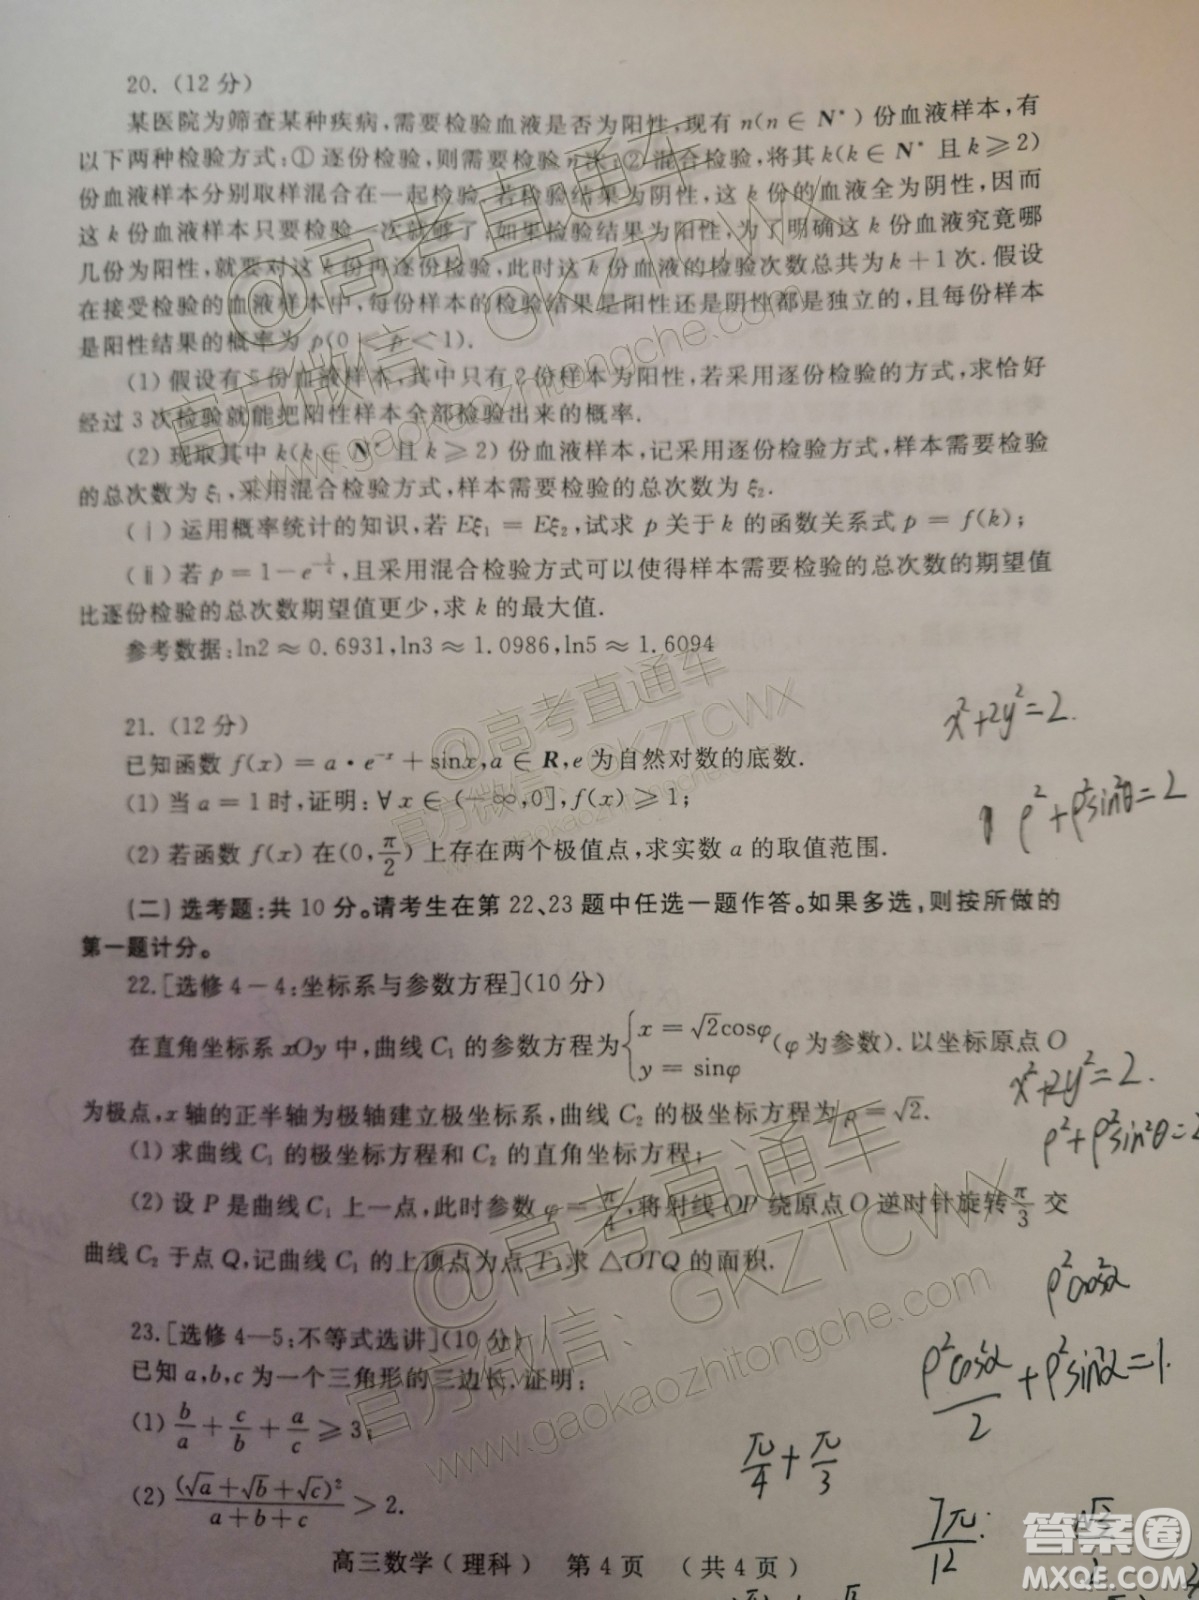 20. (12 分)
某医院为筛查某种疾病,需要检验血液是否为阳性,现有 n(n ∈ N*) 份血液样本,有
以下两种检验方式:① 逐份检验,则需要检验 n 次;② 混合检验,将其 k(k ∈ N* 且 k ⩾ 2)
份血液样本分别取样混合在一起检验.若检验结果为阴性,这 k 份的血液全为阴性,因而
这 k 份血液样本只要检验一次就够了,如果检验结果为阳性,为了明确这 k 份血液究竟哪
几份为阳性,就要对这 k 份再逐份检验,此时这 k 份血液的检验次数总共为 k + 1 次.假设
在接受检验的血液样本中,每份样本的检验结果是阳性还是阴性都是独立的,且每份样本
是阳性结果的概率为 p(0 < p < 1).
(1) 假设有 5 份血液样本,其中只有 2 份样本为阳性,若采用逐份检验的方式,求恰好
经过 3 次检验就能把阳性样本全部检验出来的概率.
(2) 现取其中 k(k ∈ N* 且 k ⩾ 2) 份血液样本,记采用逐份检验方式,样本需要检验
的总次数为 ξ₁,采用混合检验方式,样本需要检验的总次数为 ξ₂.
(ⅰ) 运用概率统计的知识,若 Eξ₁ = Eξ₂,试求 p 关于 k 的函数关系式 p = f(k);
(ⅱ) 若 p = 1 − e^{-1/4},且采用混合检验方式可以使得样本需要检验的总次数的期望值
比逐份检验的总次数期望值更少,求 k 的最大值.
参考数据:ln2 ≈ 0.6931,ln3 ≈ 1.0986,ln5 ≈ 1.6094
x²+2y²=2.
21. (12 分)
已知函数 f(x) = a • e^{-x} + sinx,a ∈ R,e 为自然对数的底数.
(1) 当 a = 1 时,证明:∀ x ∈ (−∞,0],f(x) ⩾ 1;
ρ²+ρ²sin²θ=2
(2) 若函数 f(x) 在 (0,π/2) 上存在两个极值点,求实数 a 的取值范围.
(二) 选考题:共 10 分。请考生在第 22、23 题中任选一题作答。如果多选,则按所做的
第一题计分。
22. [选修 4 − 4:坐标系与参数方程](10 分)
在直角坐标系 xOy 中,曲线 C₁ 的参数方程为{x = √2cosφ y = sinφ (φ 为参数). 以坐标原点 O
x²+2y²=2.
为极点,x 轴的正半轴为极轴建立极坐标系,曲线 C₂ 的极坐标方程为 ρ = √2.
ρ²+ρ²sin²θ=2
(1) 求曲线 C₁ 的极坐标方程和 C₂ 的直角坐标方程;
(2) 设 P 是曲线 C₁ 上一点,此时参数 φ = π/4,将射线 OP 绕原点 O 逆时针旋转 π/3 交
曲线 C₂ 于点 Q,记曲线 C₁ 的上顶点为点 T,求 △OTQ 的面积.
ρ²cos²α
23. [选修 4—5:不等式选讲](10 分)
已知 a,b,c 为一个三角形的三边长.证明:
ρ²cos²α/2 + ρ²sin²α = 1.
(1) b/a + c/b + a/c ⩾ 3;
π/4 + π/3
(2) (√a + √b + √c)²/(a + b + c) > 2.
7π/12
高三数学(理科) 第 4 页 (共 4 页)
@高考直通车
官方微信:GKZTCWX
www.gaokaozhitongche.com
@高考直通车
官方微信:GKZTCWX
www.gaokaozhitongche.com
@高考直通车
官方微信:GKZTCWX
www.gaokaozhitongche.com
答案圈
MXQE.COM